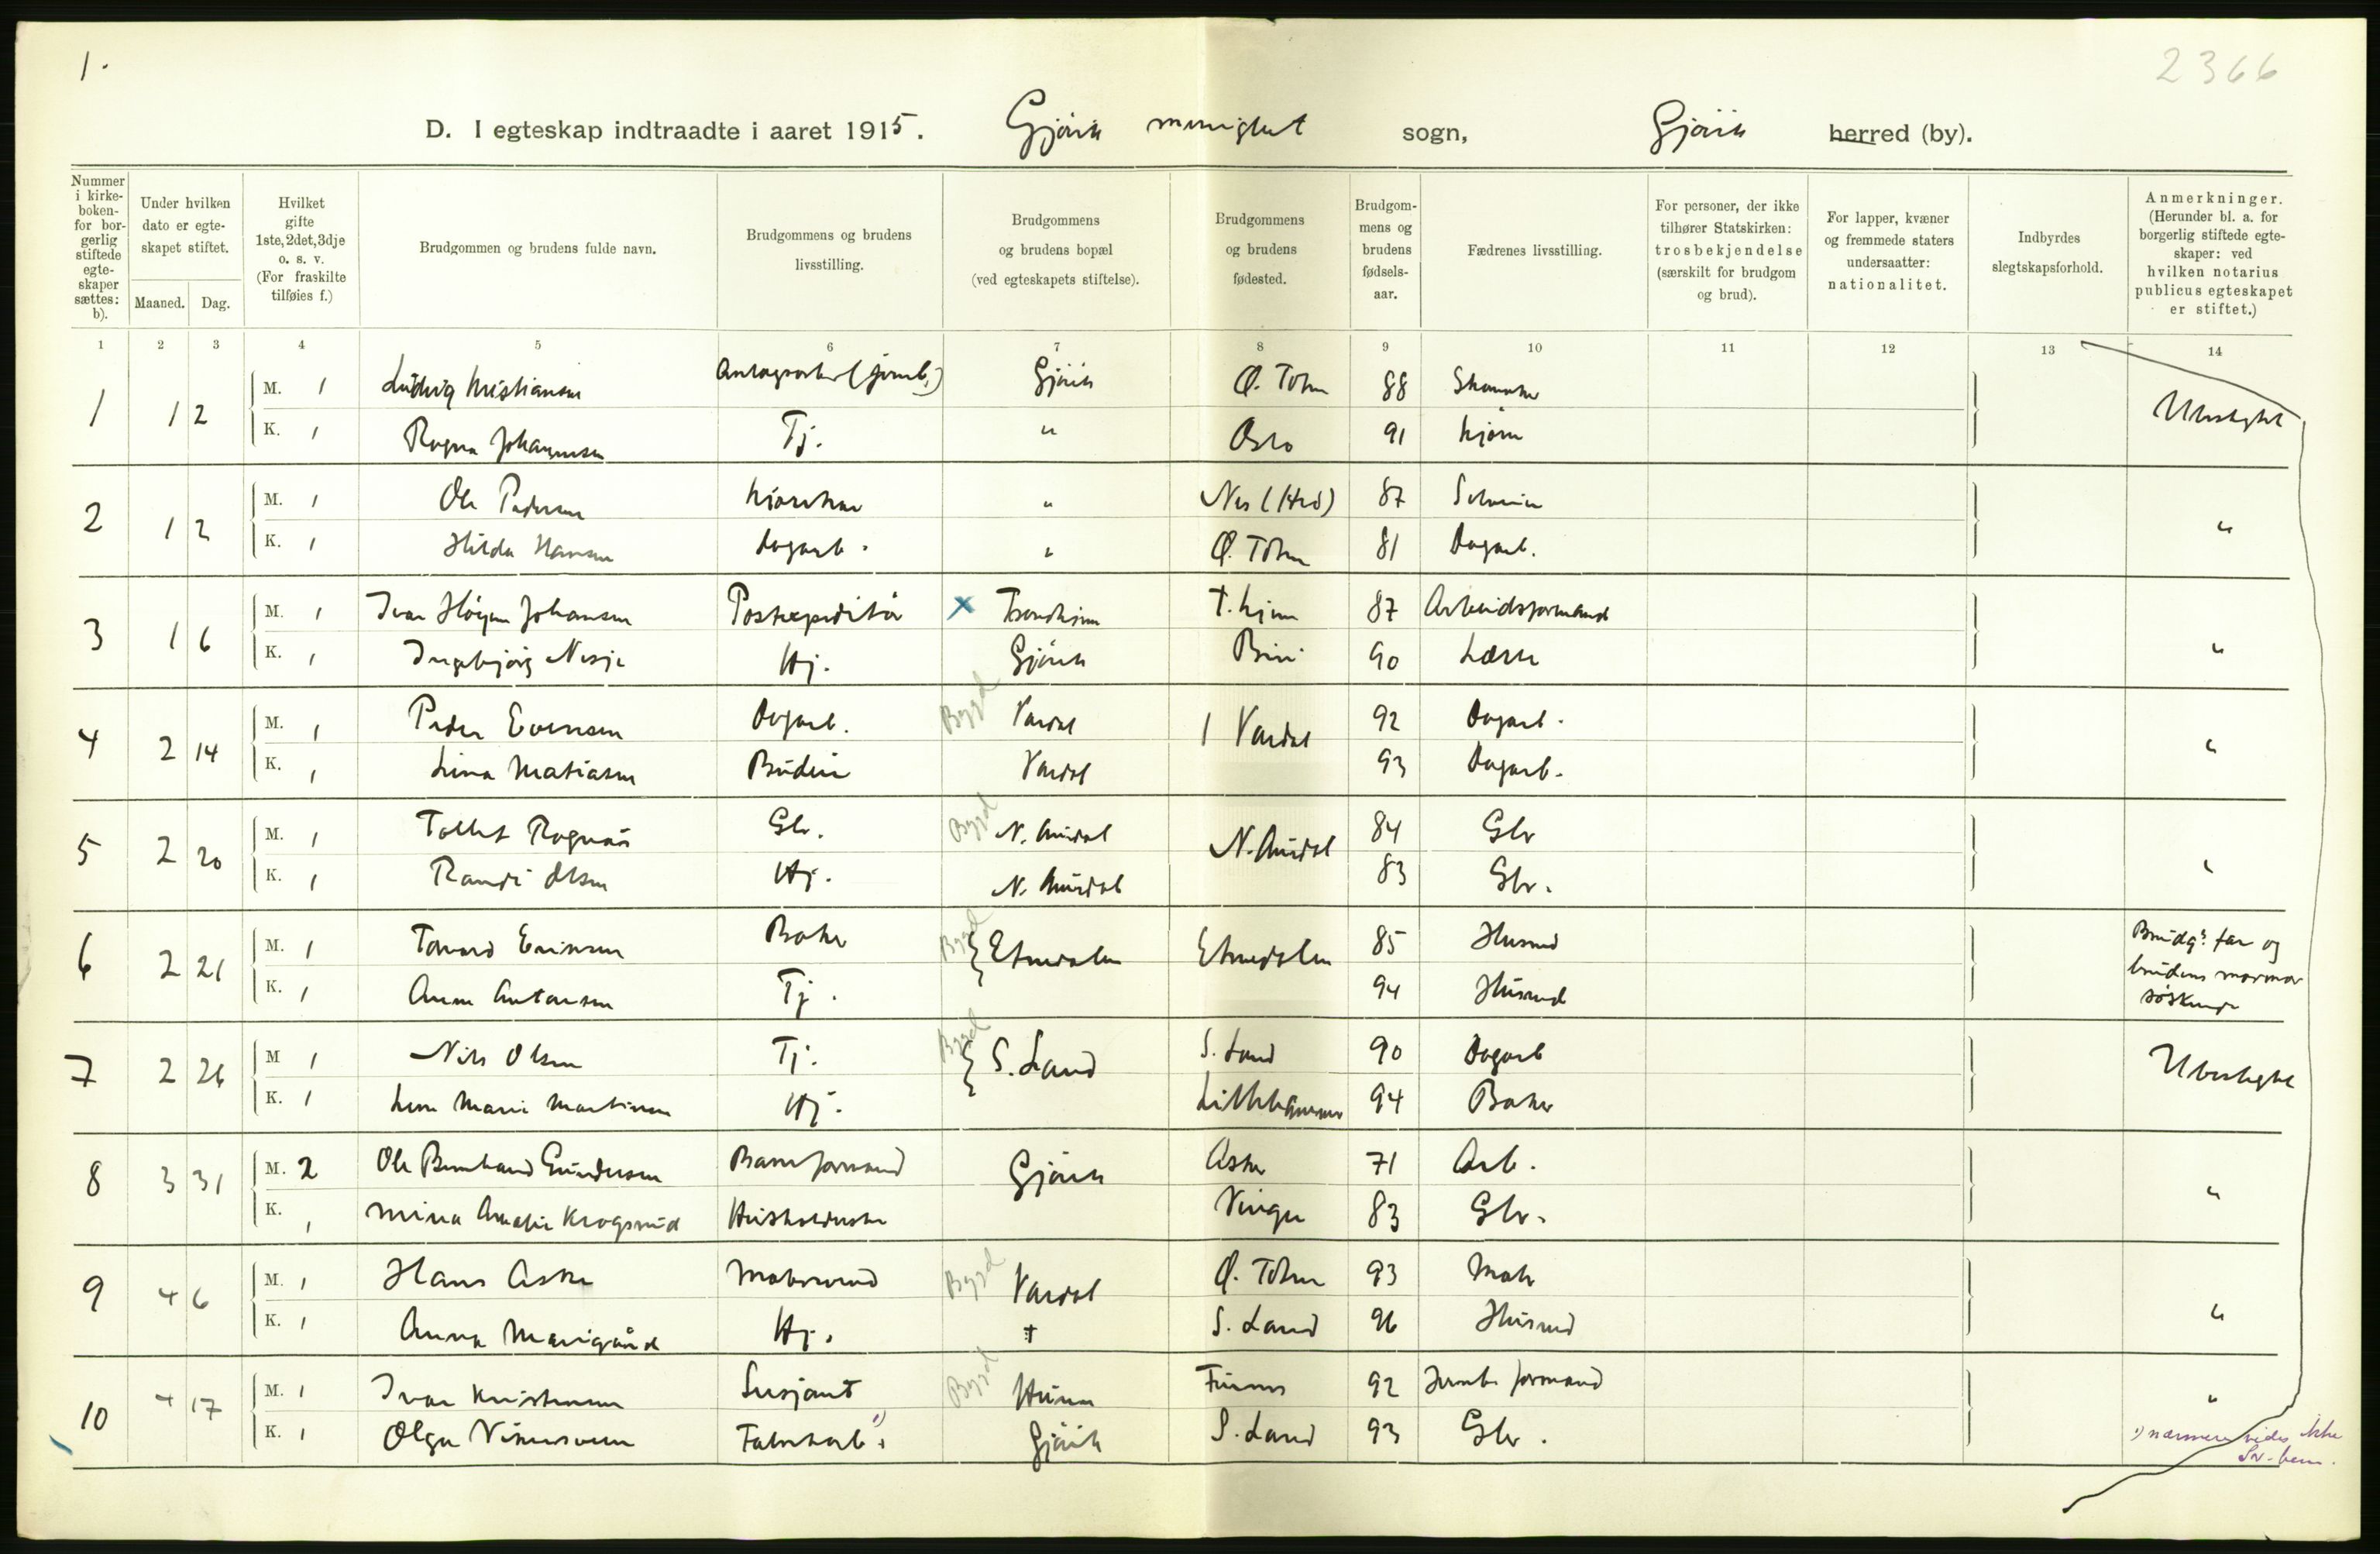 1.
2366
D. I egteskap indtraadte i aaret 1915. Gjövik menighet sogn, Gjövik herred (by).
Nummer i kirkeboken - for borgerlig stiftede egteskaper sættes: b).
Under hvilken dato er egteskapet stiftet.
Maaned. Dag.
Hvilket gifte 1ste, 2det, 3dje o. s. v. (For fraskilte tilføies f.)
Brudgommen og brudens fulde navn.
Brudgommens og brudens livsstilling.
Brudgommens og brudens bopæl (ved egteskapets stiftelse).
Brudgommens og brudens fødested.
Brudgommens og brudens fødselsaar.
Fædrenes livsstilling.
For personer, der ikke tilhører Statskirken: trosbekjendelse (særskilt for brudgom og brud).
For lapper, kvæner og fremmede staters undersaatter: nationalitet.
Indbyrdes slegtskapsforhold.
Anmerkninger. (Herunder bl. a. for borgerlig stiftede egteskaper: ved hvilken notarius publicus egteskapet er stiftet.)
1 2 3 4 5 6 7 8 9 10 11 12 13 14
1 1 2 M. 1 Ludvig Kristiansen Gjövik Ø. Toten 88 Skomaker Ubeslegtet
K. 1 Ragna Johannesen Tj. " Oslo 91 Kjörer
2 1 2 M. 1 Ole Pedersen " Nes (Hed) 87 "
K. 1 Hilda Hansen Dagarb. " Ø. Toten 81 Dagarb.
3 1 6 M. 1 Ivar Högen Johansen Postexpeditör x Trondhjem T.hjem 87 Arbeidsformand "
K. 1 Ingebjörg Nesje Hj. Gjövik Biri 90 Lærer
4 2 14 M. 1 Peder Evensen Dagarb. Bygd Vardal } Vardal 92 Dagarb. "
K. 1 Lina Matiasen Budeie Vardal 93 Dagarb.
5 2 20 M. 1 Tollef Rognås Gbr. Bygd N. Aurdal N. Aurdal 84 Gbr "
K. 1 Randi Olsen Hj. N. Aurdal 83 Gbr.
6 2 21 M. 1 Tovard Eriksen Baker Bygd { Etnedalen Etnedalen 85 Husmd Brudg's far og brudens mormor söskende
K. 1 Anne Antonsen Tj. 94 Husmd
7 2 26 M 1 Nils Olsen Tj. Bygd { S. Land S. Land 90 Dagarb Ubeslegtet
K. 1 Lina Marie Martinsen Hj. Lillehammer 94 Baker
8 3 31 M. 2 Ole Bernhard Gundersen Baneformand Gjövik Asker 71 Arb. "
K. 1 Mina Amalie Krogsrud Husholderske Vinger 83 Gbr.
9 4 6 M. 1 Hans Asker Malersvend Bygd Vardal Ø. Toten 93 Maler "
K. 1 Anna Hj. + S. Land 96 Husmd
10 4 17 M. 1 Ivar Kristensen Sersjant Bygd Hunn Furnes 92 Jernb. formand "
K. 1 Olga Fabrikarb. 1) Gjövik S. Land 93 Gbr. 1) nærmere vides ikke